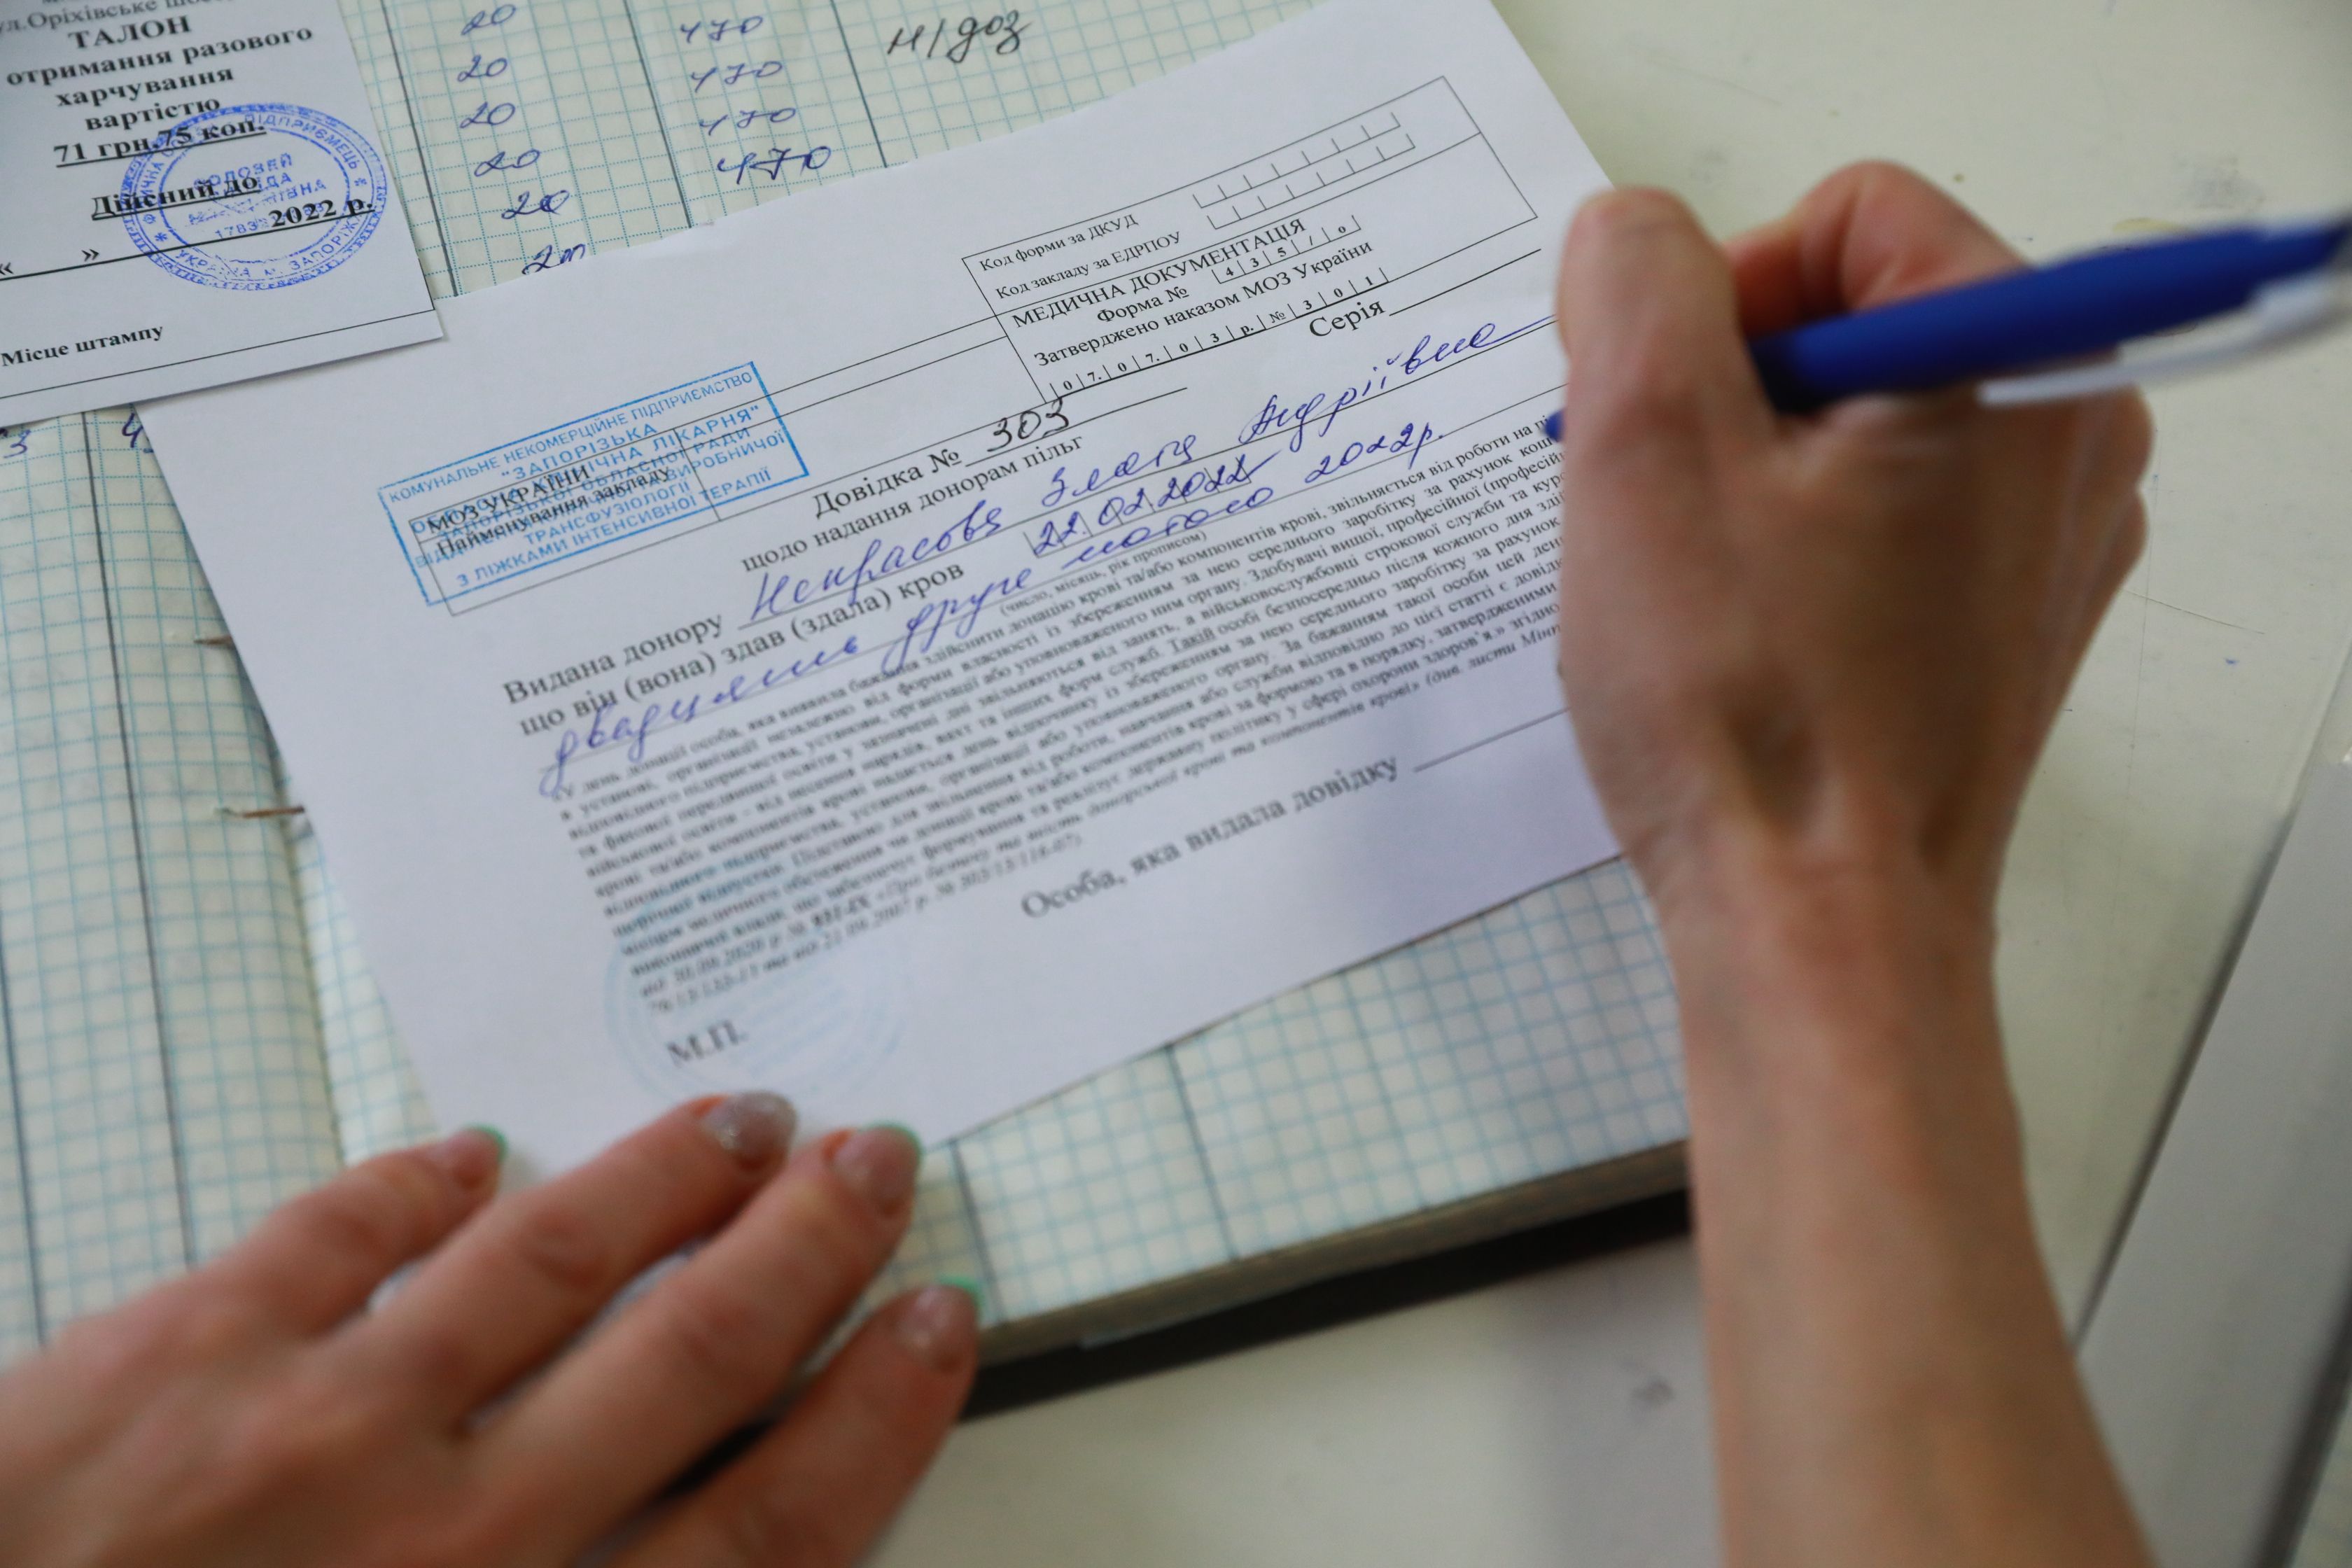 ул.Оріхівське
ТАЛОН
отримання разового
харчування
вартістю
71 грн.75 коп.
Дійсний до
« » 2022 р.
ПІДПРИЄМЕЦЬ
УКРАЇНА м. ЗАПОРІЖЖЯ
Місце штампу
20 470 н/доз
20 470
20 470
20 470
20
20
Код форми за ДКУД
Код закладу за ЕДРПОУ
МЕДИЧНА ДОКУМЕНТАЦІЯ
Форма № 4 3 5 / о
Затверджено наказом МОЗ України
0 7. 0 7. 0 3 р. № 3 0 1
Серія
КОМУНАЛЬНЕ НЕКОМЕРЦІЙНЕ ПІДПРИЄМСТВО
"ЗАПОРІЗЬКА
ОБЛАСНА КЛІНІЧНА ЛІКАРНЯ"
ЗАПОРІЗЬКОЇ ОБЛАСНОЇ РАДИ
ТРАНСФУЗІОЛОГІЇ
З ЛІЖКАМИ ІНТЕНСИВНОЇ ТЕРАПІЇ
МОЗ УКРАЇНИ
Найменування закладу
Довідка № 303
щодо надання донорам пільг
Видана донору Некрасова Злата Андріївна
що він (вона) здав (здала) кров 22.02.2022
двадцять друге лютого 2022р.
(число, місяць, рік прописом)
«У день донації особа, яка виявила бажання здійснити донацію крові та/або компонентів крові, звільняється від роботи на
в установі, організації незалежно від форми власності із збереженням за нею середнього заробітку за рахунок
відповідного підприємства, установи, організації або уповноваженого ним органу. Здобувачі вищої, професійної
та фахової передвищої освіти у зазначені дні звільняються від занять, а військовослужбовці строкової служби та
військової освіти - від несення нарядів, вахт та інших форм служб. Такій особі безпосередньо після кожного дня
крові та/або компонентів крові надається день відпочинку із збереженням за нею середнього заробітку за рахунок
відповідного підприємства, установи, організації або уповноваженого органу. За бажанням такої особи цей день
щорічної відпустки. Підставою для звільнення від роботи, навчання або служби відповідно до цієї статті є
медичного обстеження чи донації крові та/або компонентів крові за формою та в порядку, затвердженими
виконавчої влади, що забезпечує формування та реалізує державну політику у сфері охорони здоров'я.» згідно
від 30.09.2020 р. № 931-IX «Про безпеку та якість донорської крові та компонентів крові» (див. листи
Особа, яка видала довідку
М.П.